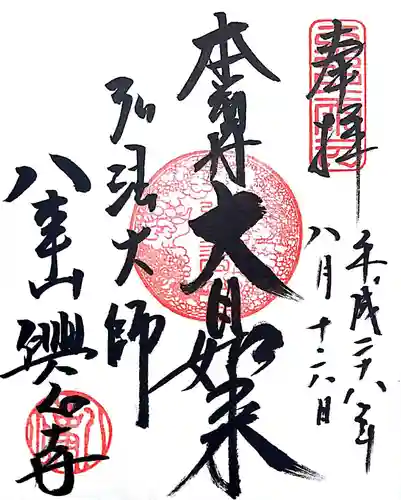 奉拝
平成二十八年
八月十六日
本尊
大日如来
弘法大師
八事山
興正寺